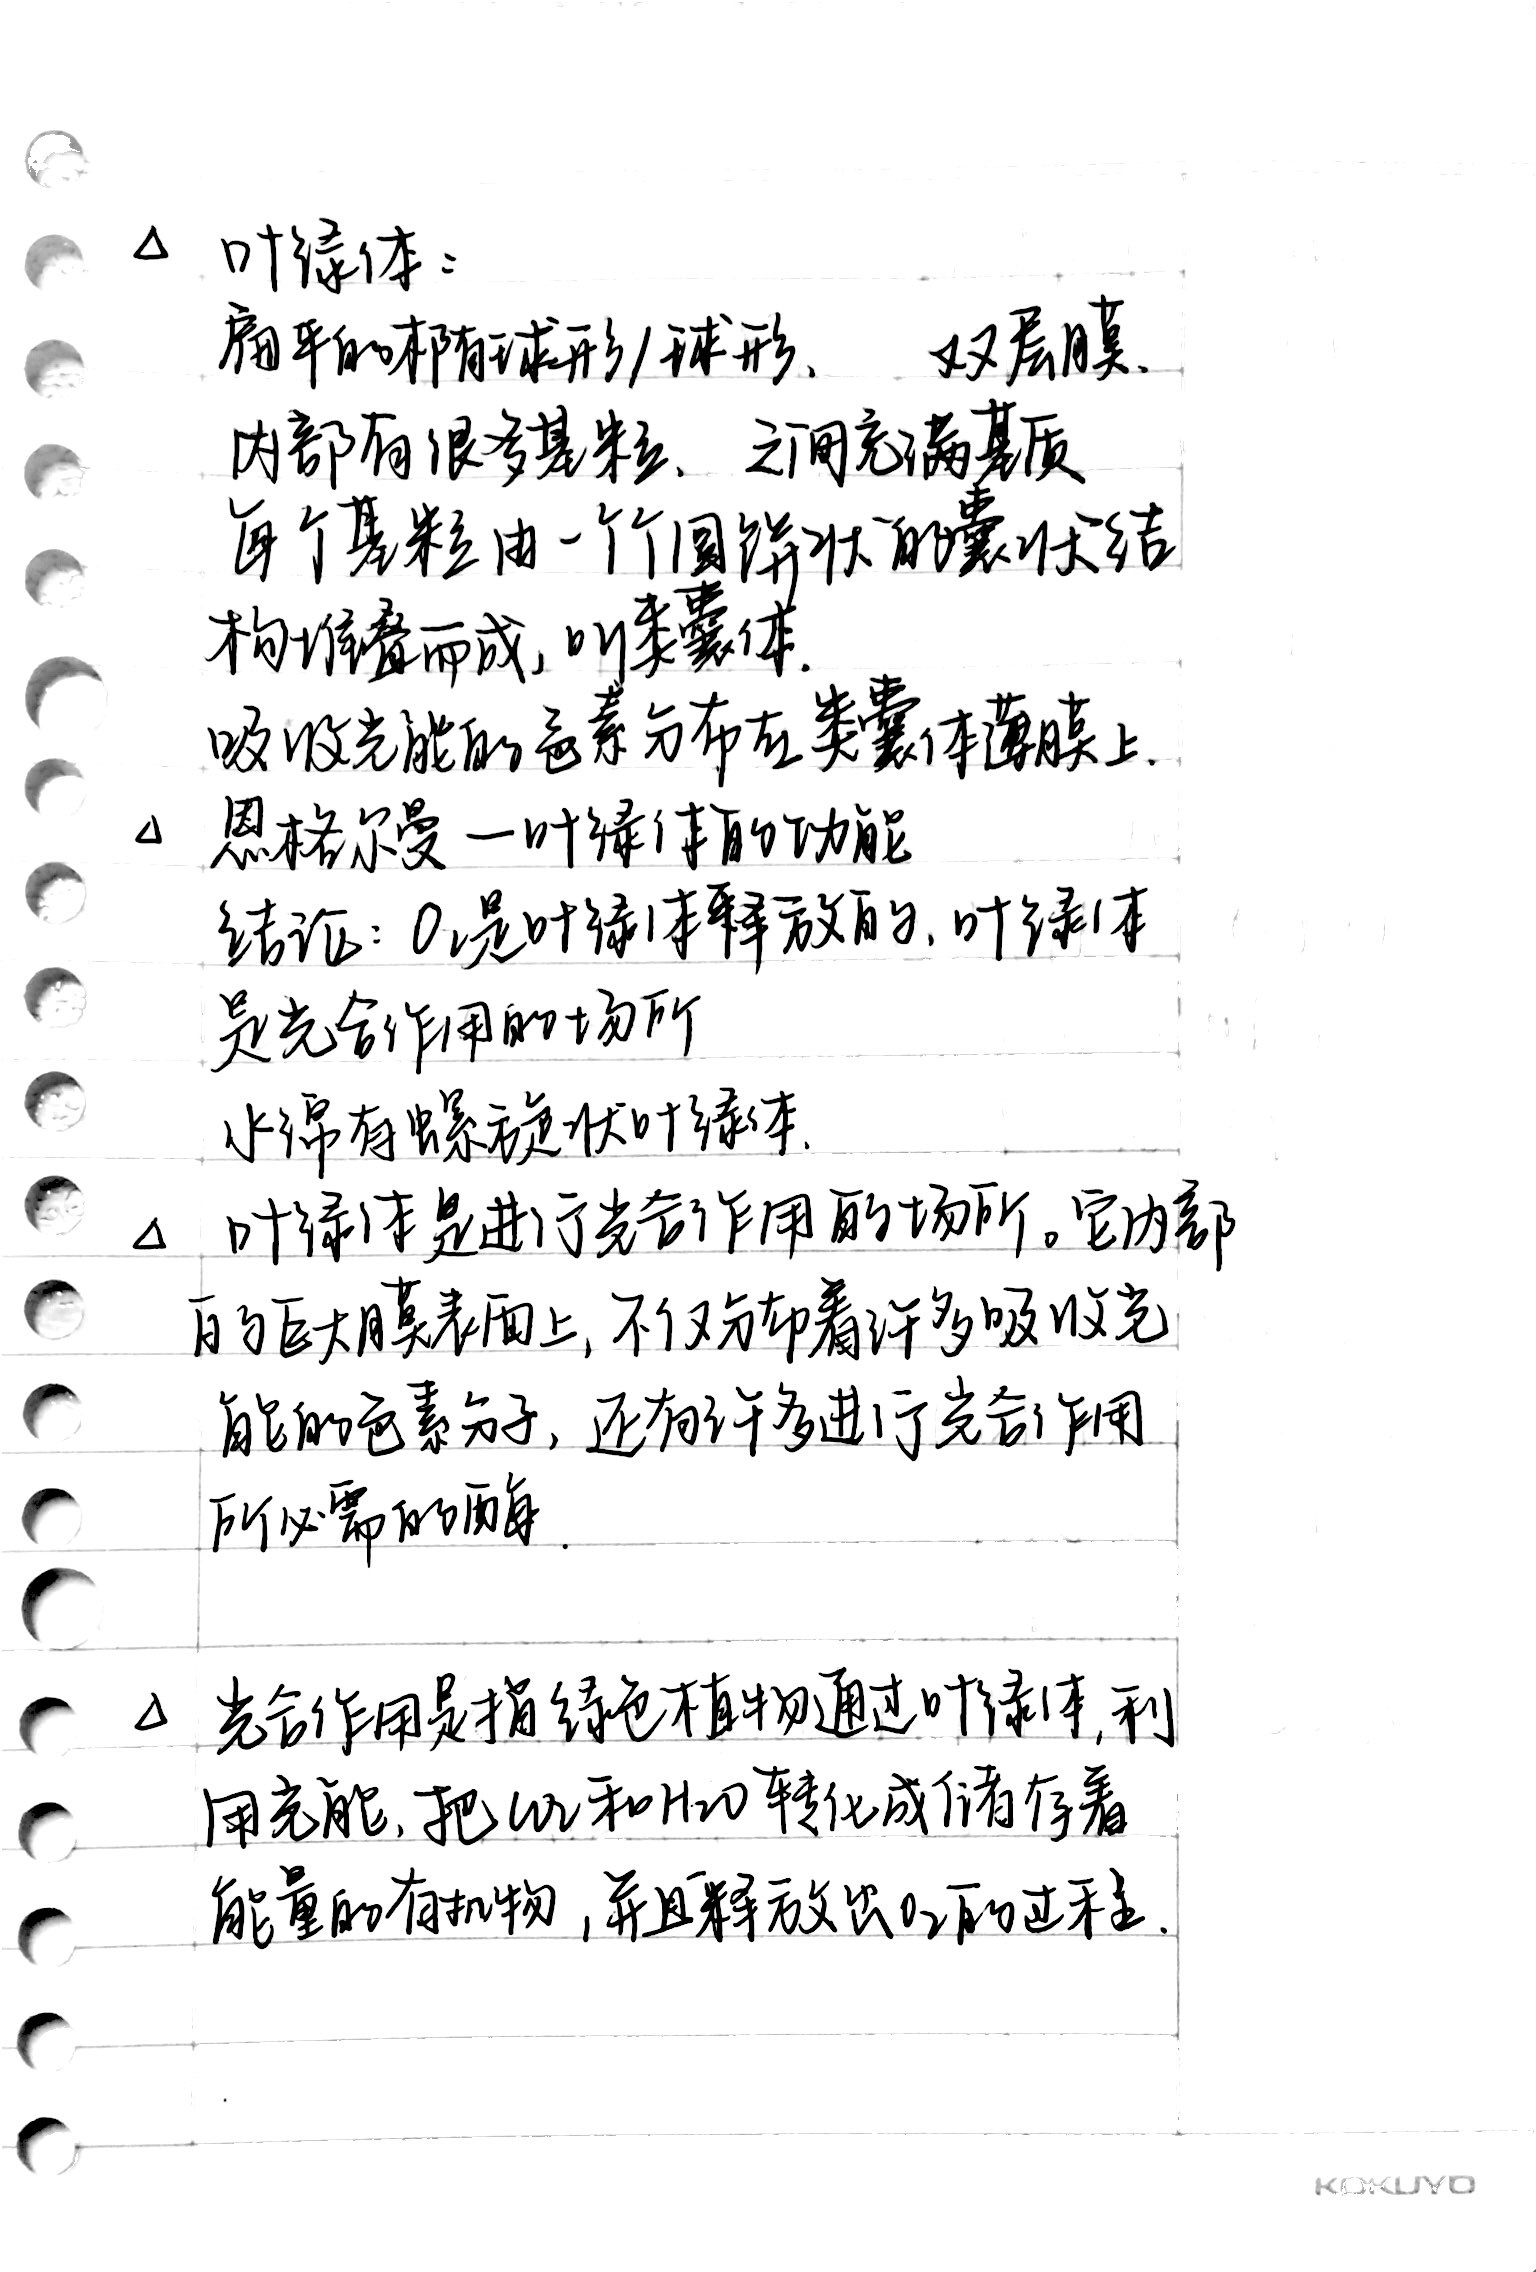 △ 叶绿体：
扁平的椭球形/球形、 双层膜.
内部有很多基粒、 之间充满基质
每个基粒由一个个圆饼状的囊状结
构堆叠而成，叫类囊体.
吸收光能的色素分布在类囊体薄膜上.
△ 恩格尔曼—叶绿体的功能
结论：O₂是叶绿体释放的、叶绿体
是光合作用的场所
水绵有螺旋状叶绿体.
△ 叶绿体是进行光合作用的场所。它内部
的巨大膜表面上，不仅分布着许多吸收光
能的色素分子，还有许多进行光合作用
所必需的酶.
△ 光合作用是指绿色植物通过叶绿体，利
用光能、把CO₂和H₂O转化成储存着
能量的有机物，并且释放出O₂的过程.
KOKUYO